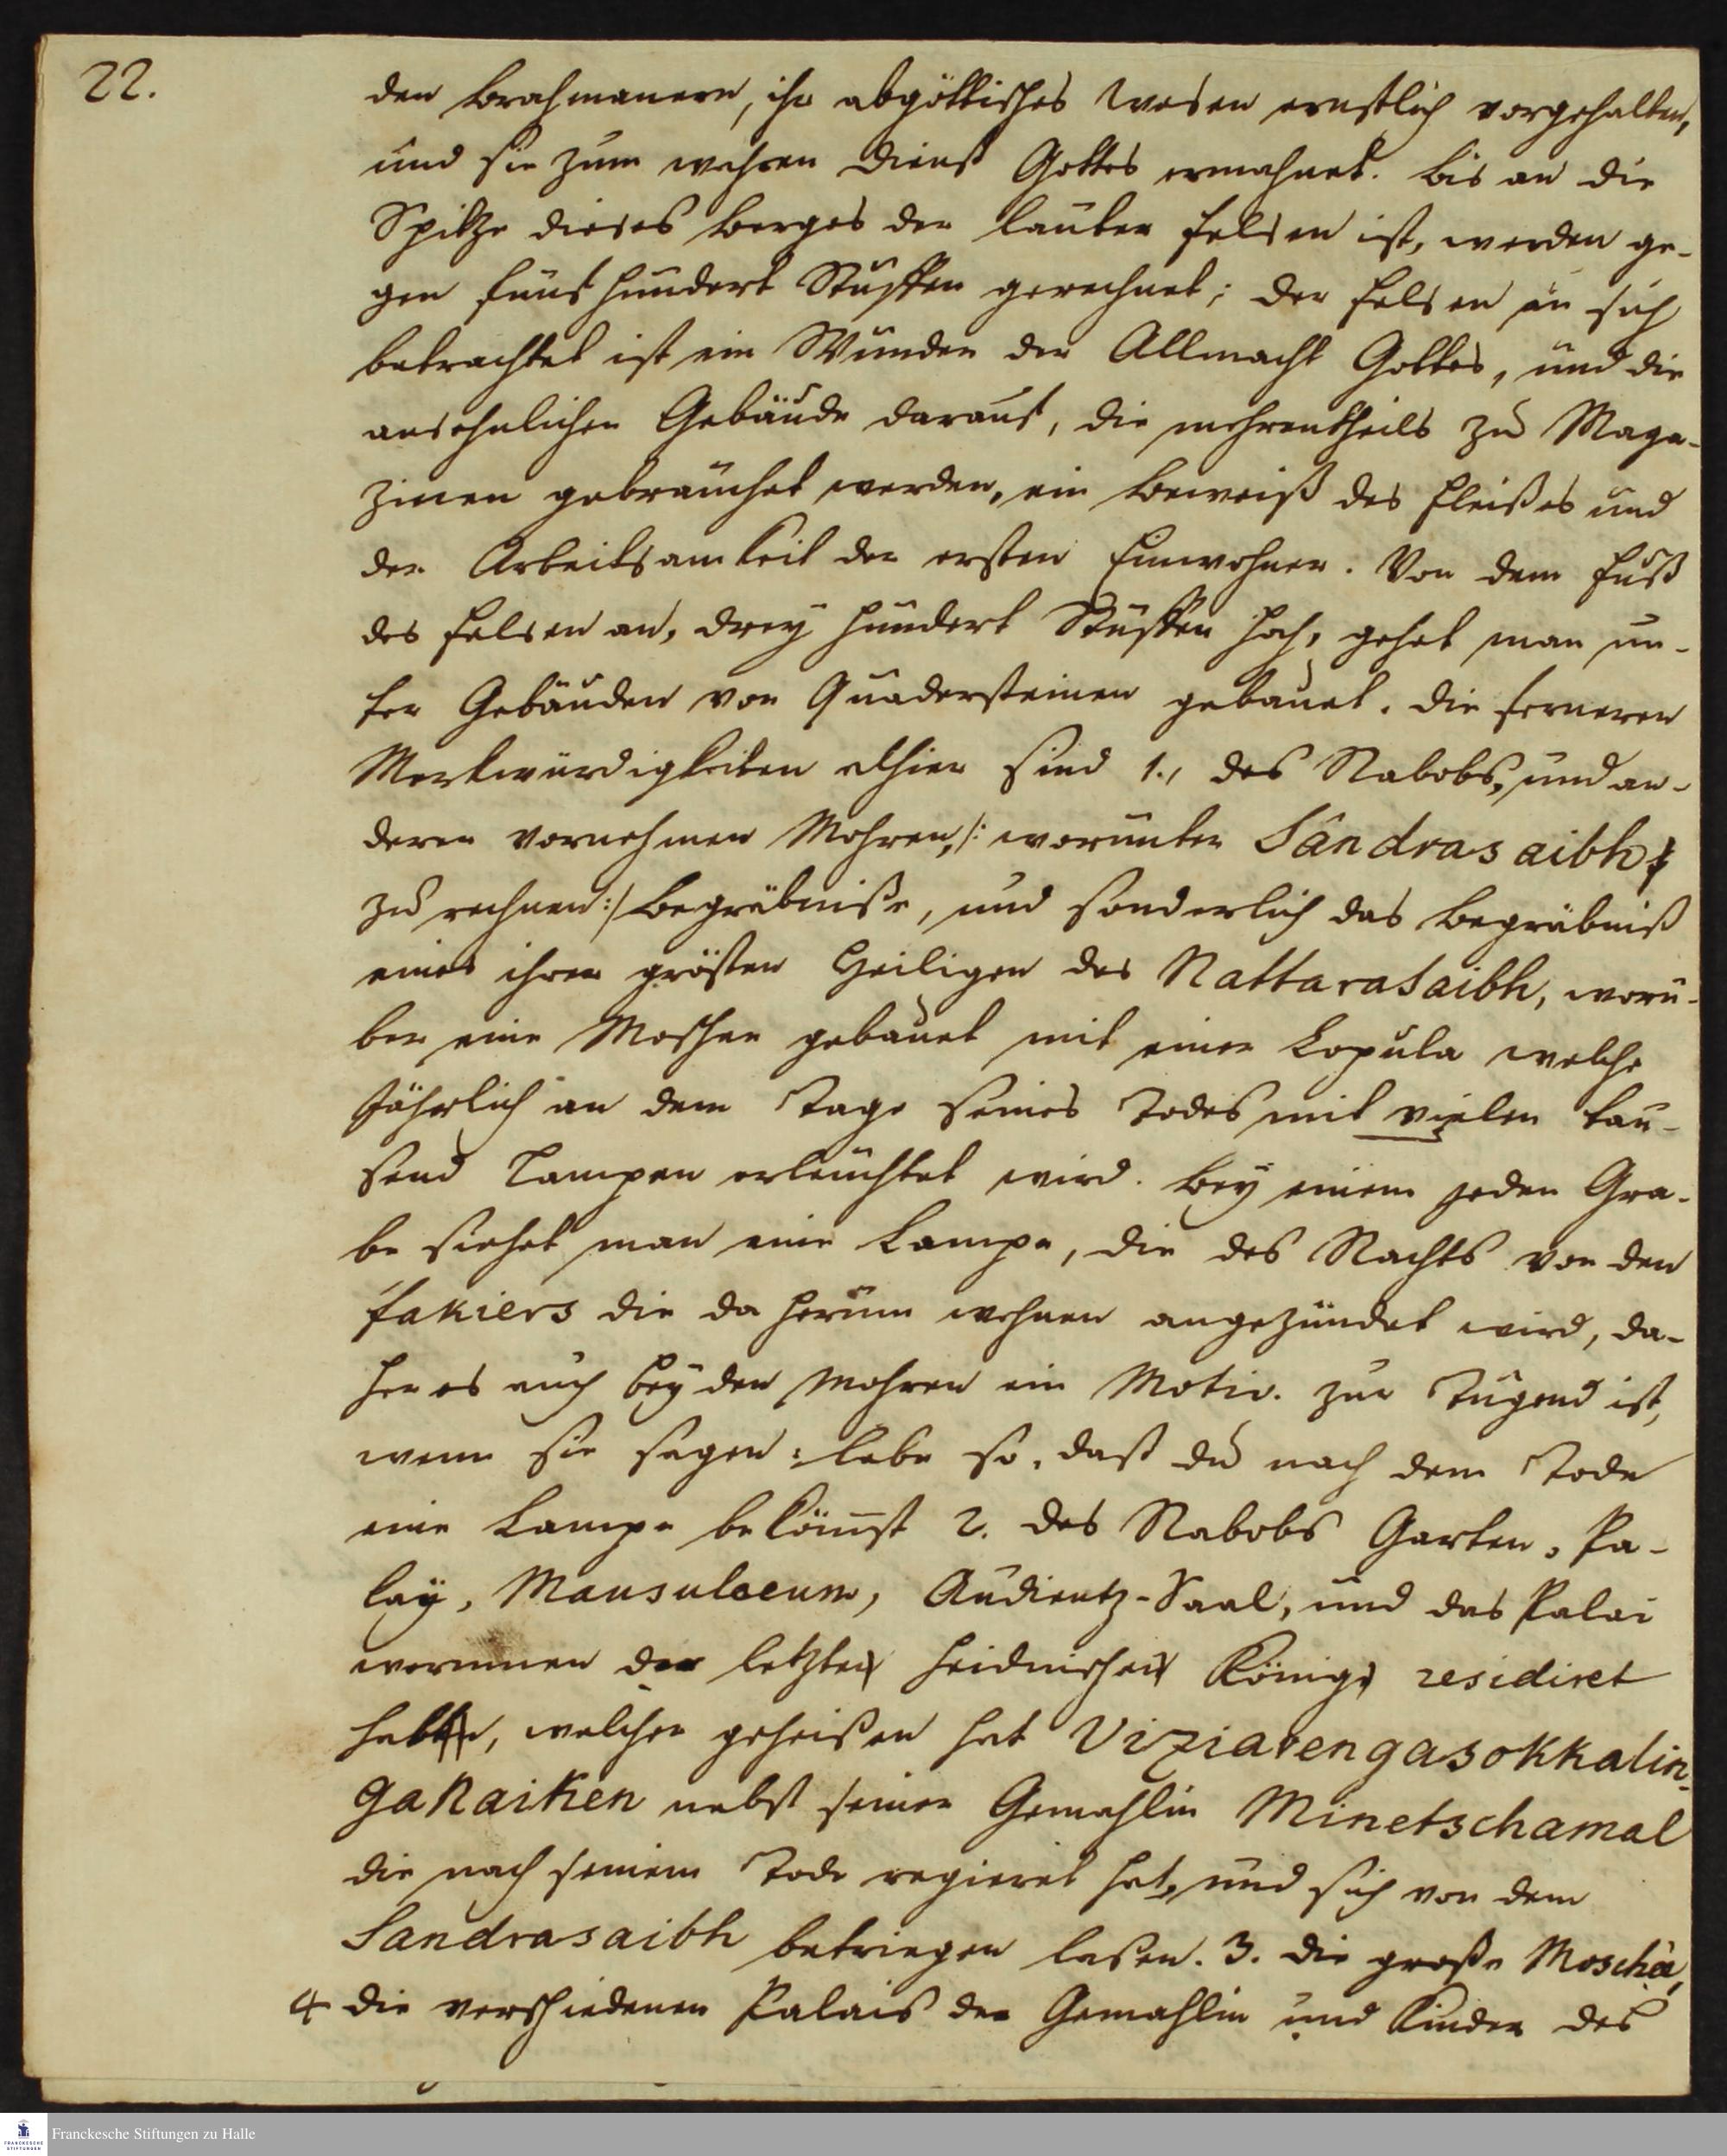 22.
den Brahmanern, ihr abgöttisches Wesen ernstlich vorgehalten,
und sie zum wahren Dienst Gottes ermahnet. Bis an die
Spitze dieses Berges der lauter Felsen ist, werden ge-
gen fünf hundert Stuffen gerechnet; der Felsen an sich
betrachtet ist ein Wunder der Allmacht Gottes, und die
ansehnlichen Gebäude darauf, die mehrentheils zu Maga-
zinen gebrauchet werden, ein Beweiß des Fleißes und
der Arbeitsamkeit der ersten Einwohner. Von dem Fuß
des Felsen an, drey hundert Stuffen hoch, gehet man un-
ter Gebäuden von Quadersteinen gebauet. Die ferneren
Merkwürdigkeiten alhier sind 1., des Nabobs, und an-
derer vornehmen Mohren, /: worunter Sandrasaibh
zu rechnen :/ Begräbniße, und sonderlich das Begräbniß
eines ihrer grösten Heiligen des Nattarasaibh, worü-
ber eine Moschee gebauet mit einer Copula welche
Jährlich an dem Tage seines Todes mit vielen tau-
send Lampen erleuchtet wird. Bey einem jeden Gra-
be siehet man eine Lampe, die des Nachts von den
fakiers die da herum wohnen angezündet wird, da-
her es auch bey den Mohren ein Motiv. zur Tugend ist,
wenn sie sagen: lebe so, dast du nach dem Tode
eine Lampe bekömst 2. des Nabobs Garten, Pa-
lay, Mausulaeum, Audientz-Saal, und das Palai
worinnen der letzte heidnische König residiret
hat, welcher geheißen hat Viziarengasokkalin-
gaNaiken nebst seiner Gemahlin Minetschamal
die nach seinem Tode regieret hat, und sich von dem
Sandrasaibh betriegen laßen. 3. die große Moschee,
4 die verschiedenen Palais der Gemahlin und Kinder des
Franckesche Stiftungen zu Halle